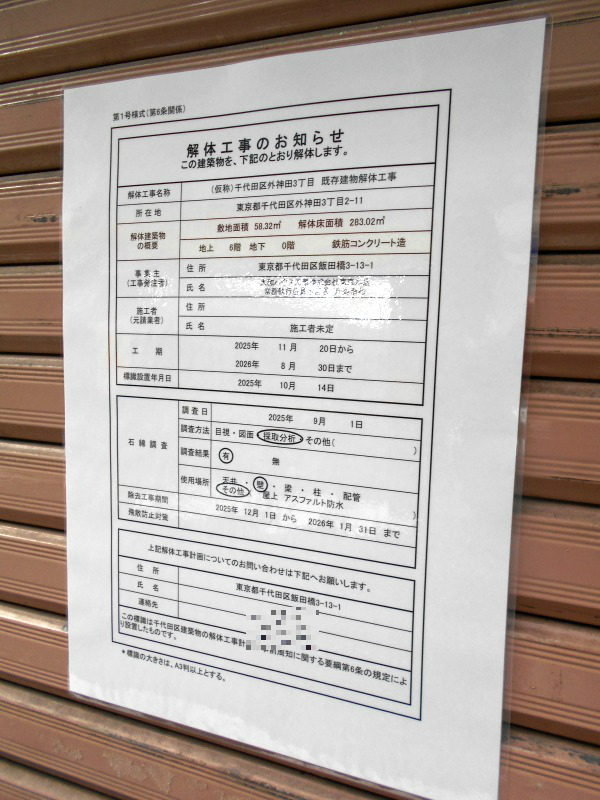 第1号様式(第6条関係)
解体工事のお知らせ
この建築物を、下記のとおり解体します。
解体工事名称 (仮称)千代田区外神田3丁目 既存建物解体工事
所在地 東京都千代田区外神田3丁目2-11
解体建築物の概要 敷地面積 58.32㎡ 解体床面積 283.02㎡
地上 6階 地下 0階 鉄筋コンクリート造
事業主(工事発注者) 住所 東京都千代田区飯田橋3-13-1
氏名
施工者(元請業者) 住所
氏名 施工者未定
工期 2025年 11月 20日から
2026年 8月 30日まで
標識設置年月日 2025年 10月 14日
石綿調査 調査日 2025年 9月 1日
調査方法 目視・図面・採取分析・その他( )
調査結果 有 無
使用場所 天井・壁・梁・柱・配管
その他 屋上 アスファルト防水 )
除去工事期間 2025年 12月 1日 から 2026年 1月 31日 まで
飛散防止対策
上記解体工事計画についてのお問い合わせは下記へお願いします。
住所 東京都千代田区飯田橋3-13-1
氏名
連絡先
この標識は千代田区建築物の解体工事計 前周知に関する要綱第6条の規定によ
り設置したものです。
*標識の大きさは、A3判以上とする。